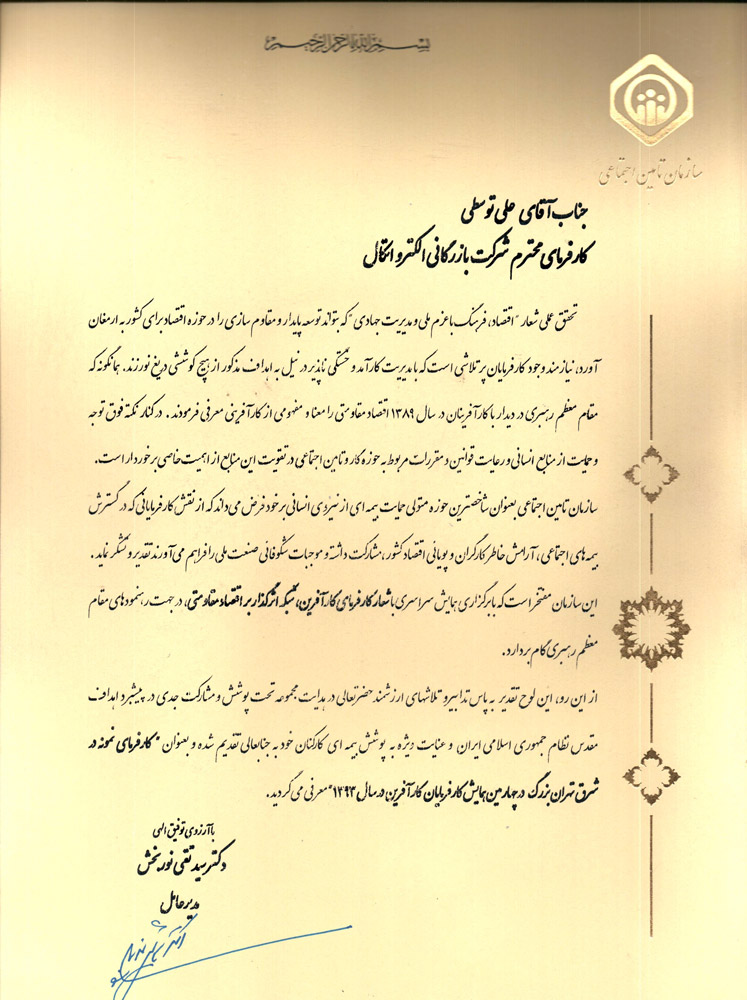 بسم الله الرحمن الرحیم
سازمان تامین اجتماعی
جناب آقای علی توسطی
کارفرمای محترم شرکت بازرگانی الکترو انتقال
تحقق عملی شعار "اقتصاد، فرهنگ با عزم ملی و مدیریت جهادی" که بتواند توسعه پایدار و مقاوم سازی را در حوزه اقتصاد برای کشور به ارمغان
آورد، نیازمند وجود کارفرمایان پرتلاشی است که با مدیریت کارآمد و خستگی ناپذیر در نیل به اهداف مذکور از هیچ کوششی دریغ نورزند. همانگونه که
مقام معظم رهبری در دیدار با کارآفرینان در سال ۱۳۸۹ اقتصاد مقاومتی را معنا و مفهومی از کارآفرینی معرفی فرمودند. در کنار نکته فوق توجه
و حمایت از منابع انسانی و رعایت قوانین و مقررات مربوط به حوزه کار و تامین اجتماعی در تقویت این منابع از اهمیت خاصی برخوردار است.
سازمان تامین اجتماعی بعنوان شاخصترین حوزه متولی حمایت بیمه ای از نیروی انسانی بر خود فرض می داند که از نقش کارفرمایانی که در گسترش
بیمه های اجتماعی، آرامش خاطر کارگران و پویائی اقتصاد کشور، مشارکت داشته و موجبات شکوفائی صنعت ملی را فراهم می آورند تقدیر و تشکر نماید.
این سازمان مفتخر است که با برگزاری همایش سراسری با شعار کارفرمای کارآفرین، شبکه اثرگذار بر اقتصاد مقاومتی، در جهت رهنمودهای مقام
معظم رهبری گام بردارد.
از این رو، این لوح تقدیر به پاس تدابیر و تلاشهای ارزشمند حضرتعالی در هدایت مجموعه تحت پوشش و مشارکت جدی در پیشبرد اهداف
مقدس نظام جمهوری اسلامی ایران و عنایت ویژه به پوشش بیمه ای کارکنان خود به جنابعالی تقدیم شده و بعنوان "کارفرمای نمونه در
شرق تهران بزرگ در چهارمین همایش کارفرمایان کارآفرین در سال ۱۳۹۳" معرفی می گردید.
با آرزوی توفیق الهی
دکتر سید تقی نوربخش
مدیرعامل